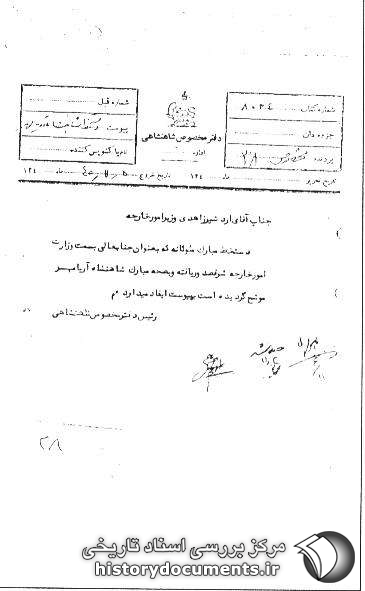 شماره کتاب ۸۰۳۴
جزوه دان
پرونده
دفتر مخصوص شاهنشاهی
اداره
شماره قبل
پیوست
نام پاکنویس کننده
تاریخ تحریر ماه ۱۳۴ تاریخ خروج ماه ۱۳۴
جناب آقای اردشیر زاهدی وزیر امور خارجه
دستخط مبارک ملوکانه که بعنوان جنابعالی بسمت وزارت
امور خارجه شرفصدور یافته و بصحه مبارک شاهنشاه آریامهر
موشح گردیده است بپیوست ایفاد میدارد
رئیس دفتر مخصوص شاهنشاهی
۲/۸
مرکز بررسی اسناد تاریخی
historydocuments.ir